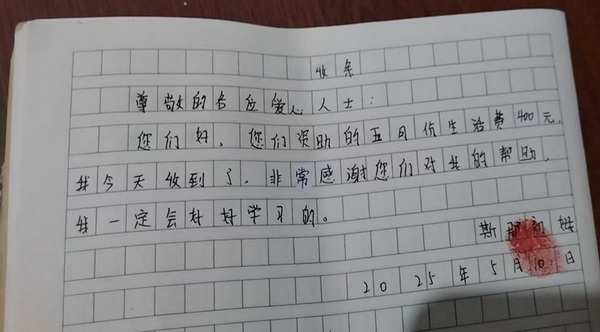 收条
尊敬的各位爱心人士：
您们好，您们资助的五月份生活费400元，
我今天收到了，非常感谢您们对我的帮助，
我一定会好好学习的。
斯那
2025年5月10日